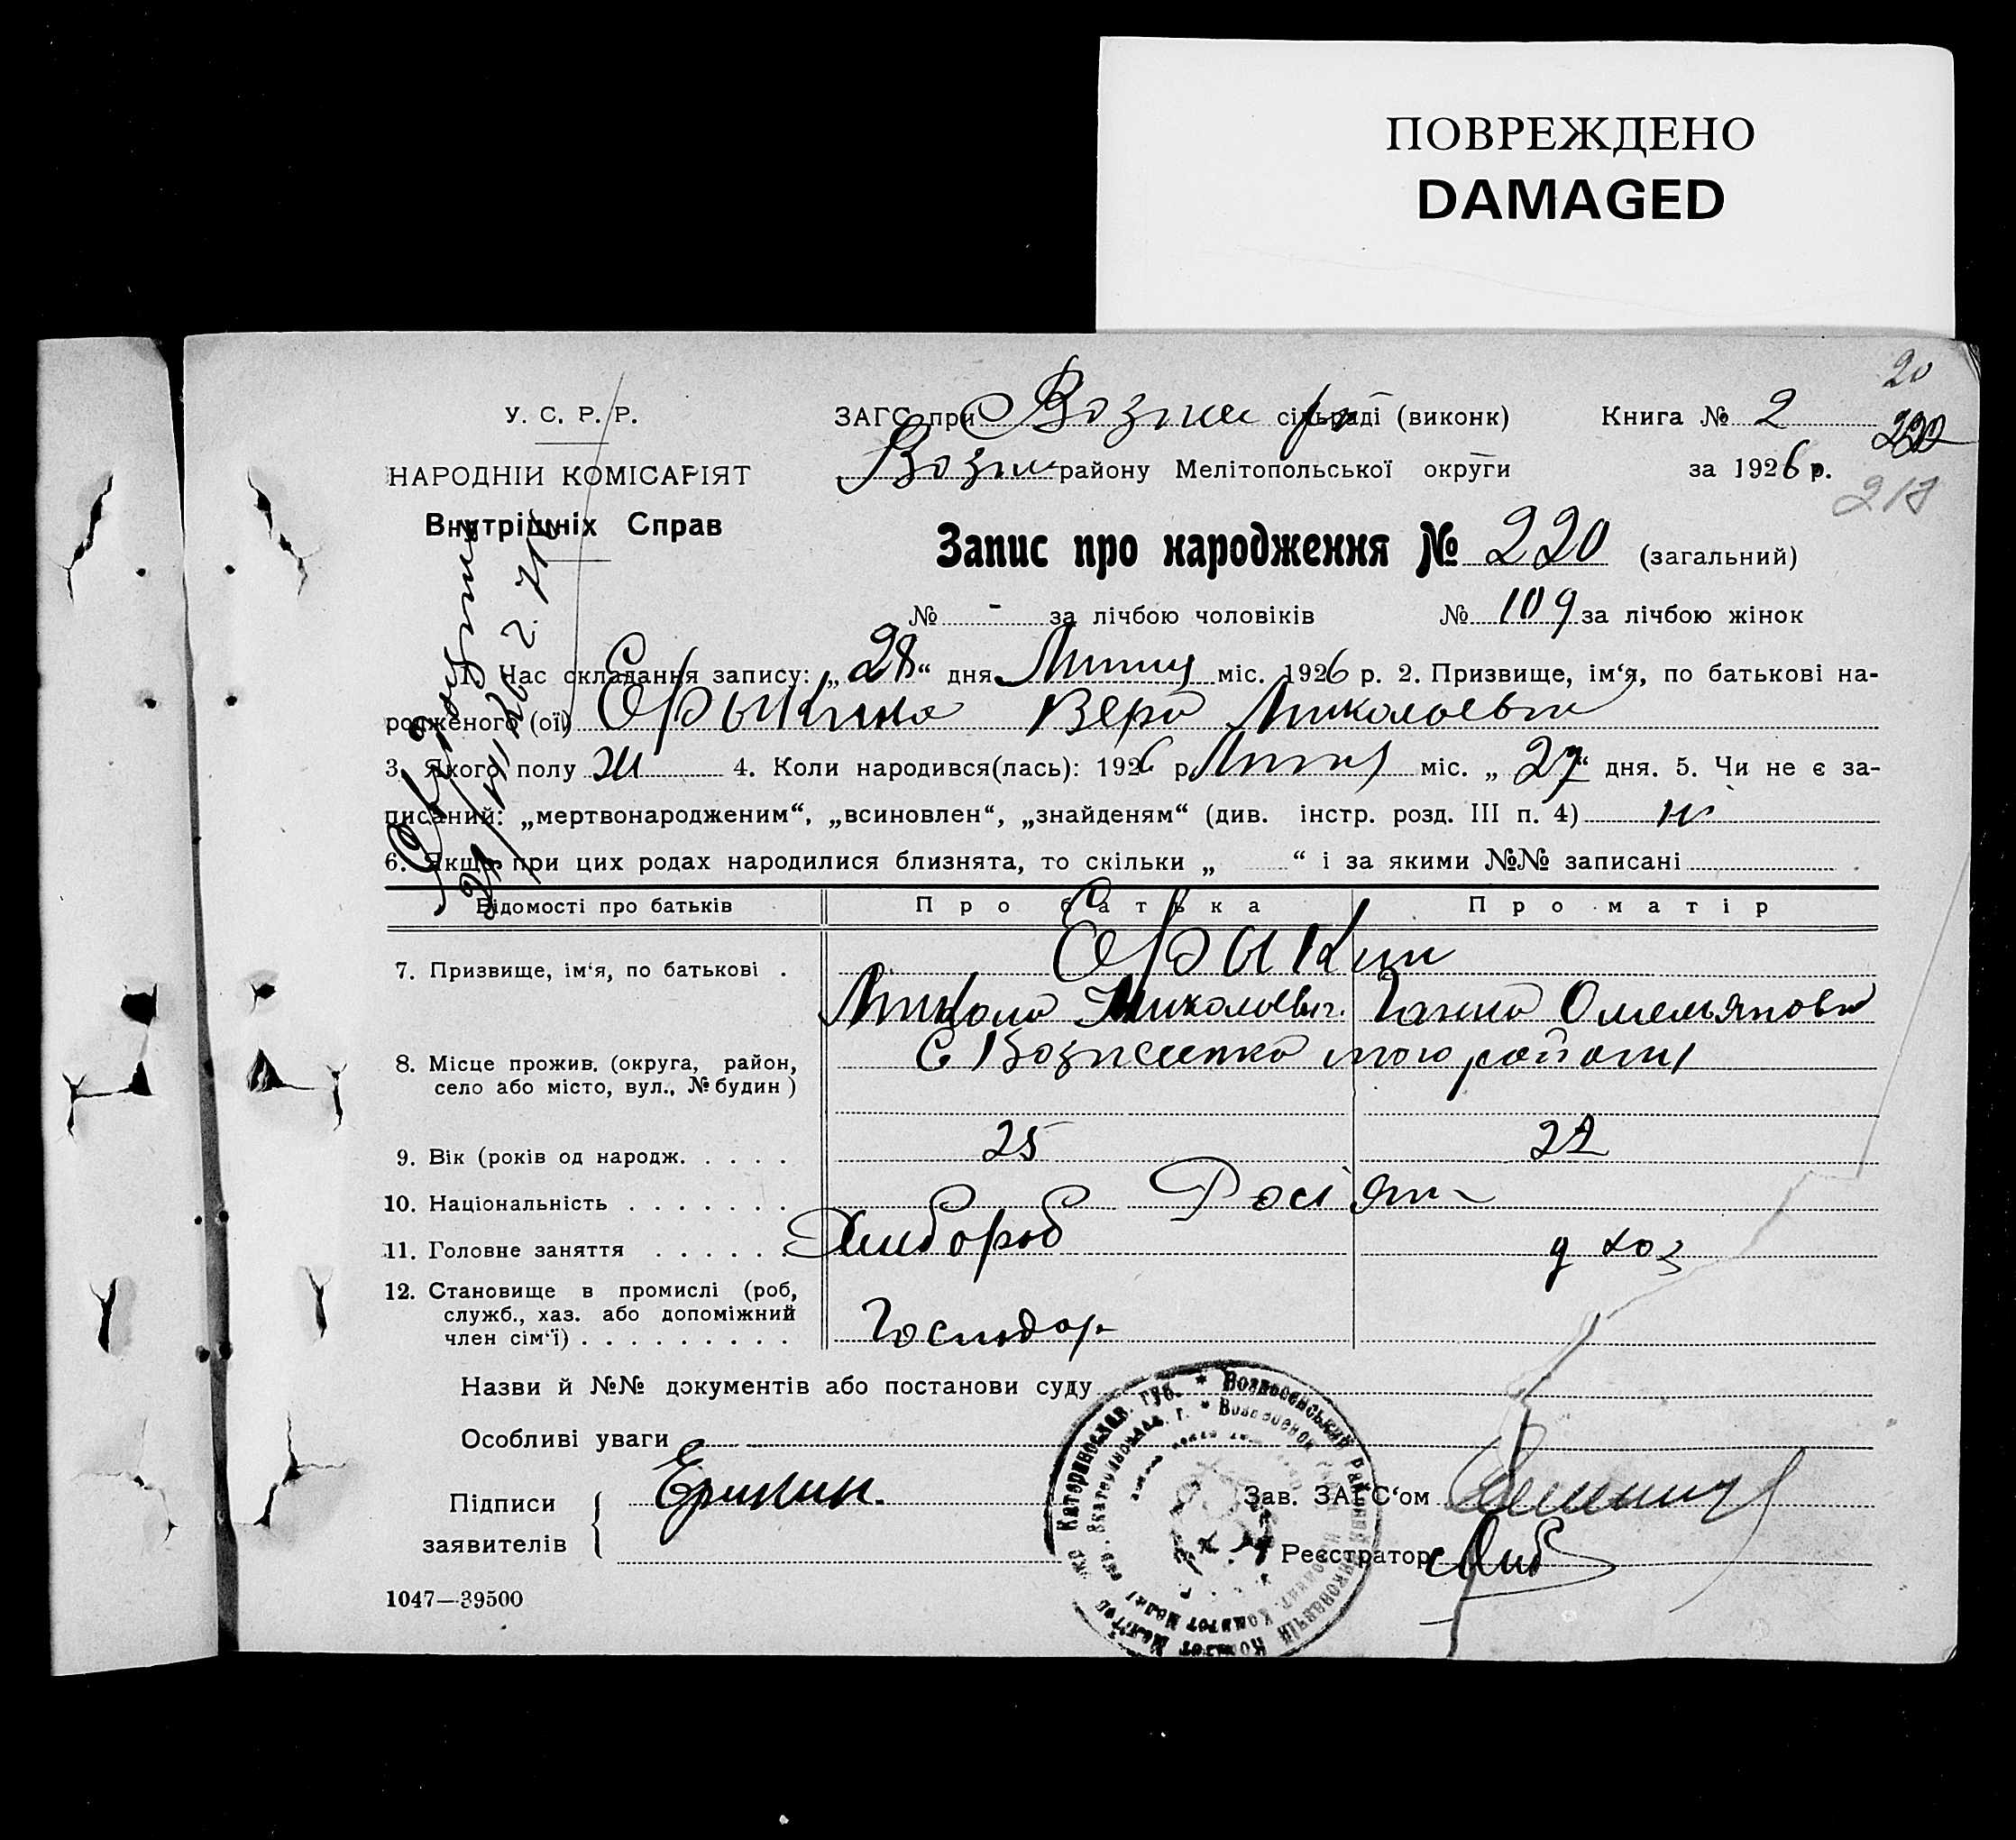 ПОВРЕЖДЕНО
DAMAGED
20
У. С. Р. Р. ЗАГС при Возне сільраді (виконк) Книга № 2
220
НАРОДНІЙ КОМІСАРІЯТ Возне району Мелітопольської округи за 1926 р.
218
Внутрішніх Справ
Запис про народження № 220 (загальний)
№ - за лічбою чоловіків № 109 за лічбою жінок
1. Час складання запису: „28“ дня Липня міс. 1926 р. 2. Призвище, ім‘я, по батькові на-
родженого (ої) Ерыкина Вера Миколаевна
3. Якого полу ж 4. Коли народився(лась): 1926 р. Липня міс. „27“ дня. 5. Чи не є за-
писаний: „мертвонародженим“, „всиновлен“, „знайденям“ (див. інстр. розд. III п. 4) ні
6. Якщо при цих родах народилися близнята, то скільки „ “ і за якими №№ записані
Відомості про батьків Про батька Про матір
7. Призвище, ім‘я, по батькові . Ерыкин
Микола Миколаевич. Ганна Омельянова
8. Місце прожив. (округа, район, С Вознесенка того району
село або місто, вул., № будин)
9. Вік (років од народж. . . . . 25 22
10. Національність . . . . . . . Росіян-
11. Головне заняття . . . . . . Хлібороб д хоз
12. Становище в промислі (роб,
служб., хаз. або допоміжний
член сім‘ї) . . . . . . . . . Господар
Назви й №№ документів або постанови суду
Особливі уваги
Підписи Ерикин. Зав. ЗАГС‘ом
заявителів Реєстратор
1047—39500
Катеринослав. губ. * Вознесенський Районний Виконавчий Комітет Меліто